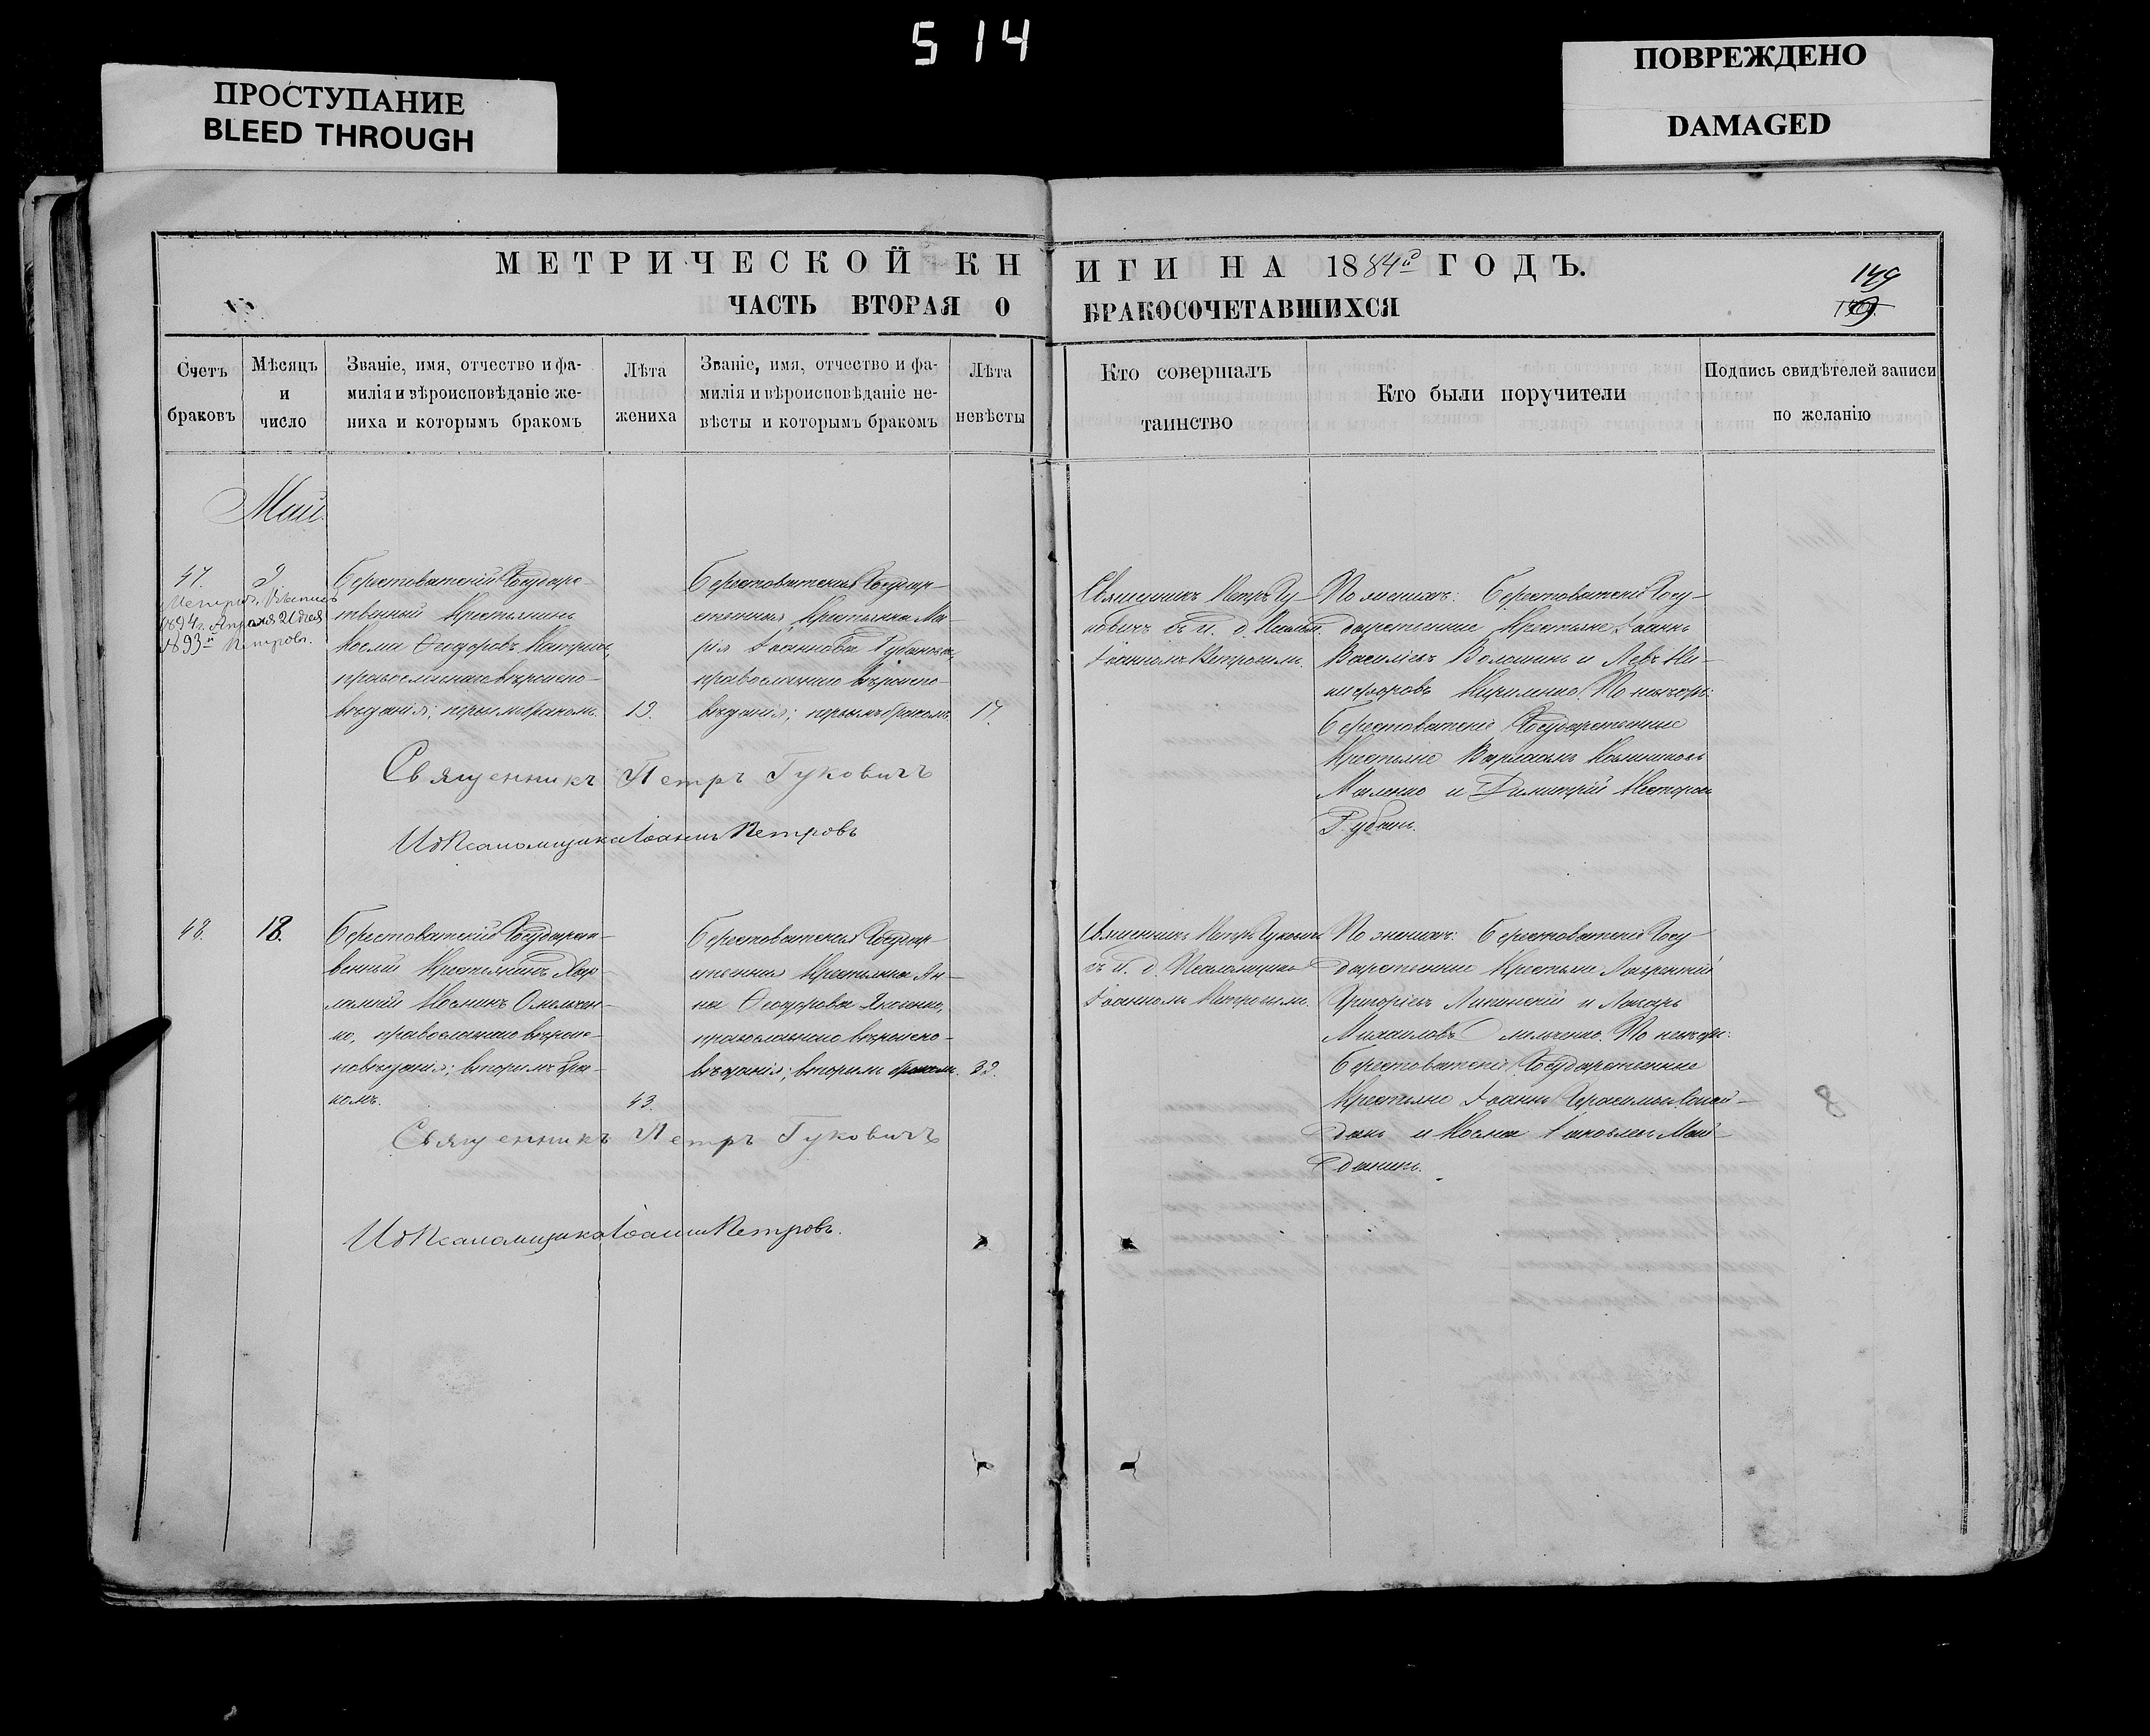 5 14
ПРОСТУПАНИЕ
BLEED THROUGH
ПОВРЕЖДЕНО
DAMAGED
МЕТРИЧЕСКОЙ КНИГИ НА 1884й ГОДЪ.
149
ЧАСТЬ ВТОРАЯ О БРАКОСОЧЕТАВШИХСЯ
Счетъ
браковъ
Мѣсяцъ
и
число
Званіе, имя, отчество и фа-
милія и вѣроисповѣданіе же-
ниха и которымъ бракомъ
Лѣта
жениха
Званіе, имя, отчество и фа-
милія и вѣроисповѣданіе не-
вѣсты и которымъ бракомъ
Лѣта
невѣсты
Кто совершалъ
таинство
Кто были поручители
Подпись свидѣтелей записи
по желанію
Май.
47.
9
1894 г. Апрѣля 21 дня
1893 Петровъ.
Берестоватскій Государс-
твенный Крестьянинъ
Косма Ѳеодоровъ
православнаго вѣроиспо-
вѣданія; первымъ бракомъ.
19.
Берестоватская Государ-
ственная Крестьянка Ма-
рія Іоаннова Рубанова,
православнаго вѣроиспо-
вѣданія; первымъ бракомъ.
17.
Священникъ Петръ Гу-
ковичъ съ И. д. Псалом.
Іоанномъ Петровымъ.
По женихѣ: Берестоватскіе Госу-
дарственные Крестьяне Іоаннъ
Василіевъ Волошинъ и Левъ Ни-
кифоровъ Кириленко. По невѣстѣ:
Берестоватскіе Государственные
Крестьяне Варлаамъ
Маленко и Димитрій Несторовъ
Рубанъ.
Священникъ Петръ Гуковичъ
И д Псаломщика Іоаннъ Петровъ
48.
18.
Берестоватскій Государст-
венный Крестьянинъ Хар-
лампій Косминъ Омельчен-
ко, православнаго вѣроис-
повѣданія; вторымъ бра-
комъ.
43.
Берестоватская Государ-
ственная Крестьянка Ан-
на Ѳеодорова
православнаго вѣроиспо-
вѣданія; вторымъ бракомъ.
32.
Священникъ Петръ Гуковичъ
съ И. д. Псаломщика
Іоанномъ Петровымъ.
По женихѣ: Берестоватскіе Госу-
дарственные Крестьяне Лаврентій
Григоріевъ и Захаръ
Михаиловъ Омельченко. По невѣстѣ:
Берестоватскіе Государственные
Крестьяне Іоаннъ Герасимовъ
и Косма Іаковлевъ Май-
данникъ.
8
Священникъ Петръ Гуковичъ
И д Псаломщика Іоаннъ Петровъ.